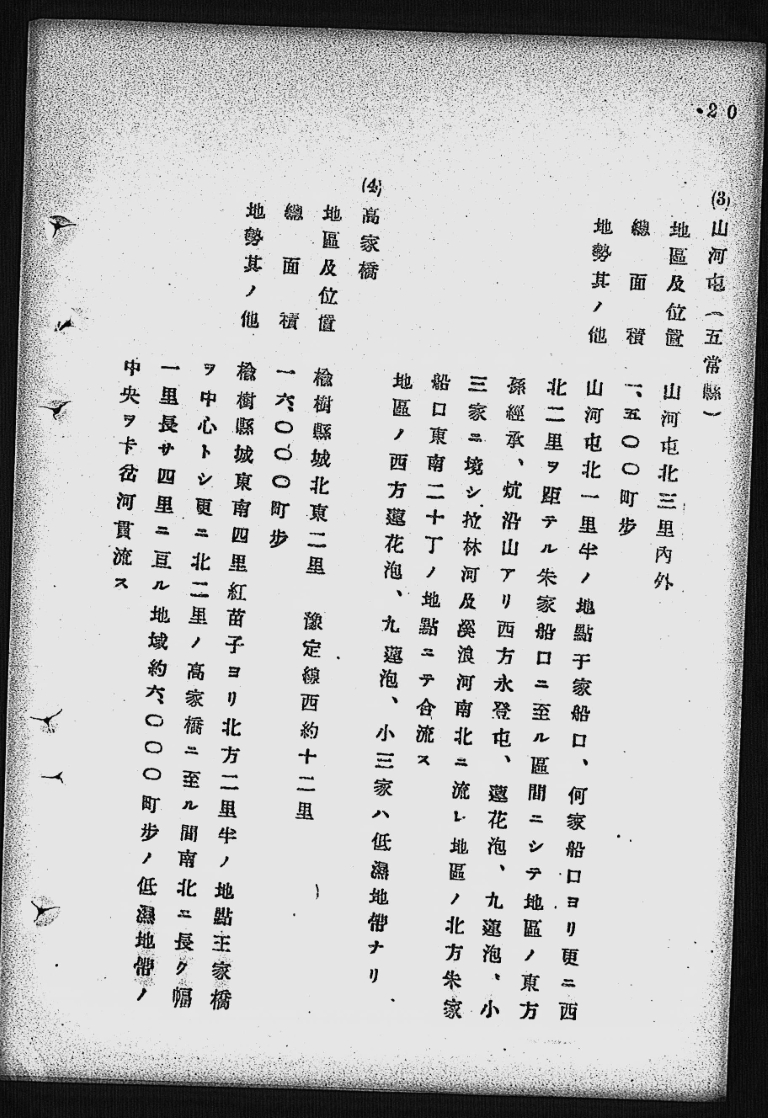 20
(3) 山河屯(五常縣)
地區及位置 山河屯北三里內外
總面積 一、五〇〇町步
地勢其ノ他 山河屯北一里半ノ地點于家船口、何家船口ヨリ更ニ西
北二里ヲ距テル朱家船口ニ至ル區間ニシテ地區ノ東方
孫經承、炕沿山アリ西方永登屯、蓮花泡、九蓮泡、小
三家ニ境シ拉林河及溪浪河南北ニ流レ地區ノ北方朱家
船口東南二十丁ノ地點ニテ合流ス
地區ノ西方蓮花泡、九蓮泡、小三家ハ低濕地帶ナリ、
(4) 高家橋
地區及位置 楡樹縣城北東二里 豫定線西約十二里
總面積 一六、〇〇〇町步
地勢其ノ他 楡樹縣城東南四里紅苗子ヨリ北方二里半ノ地點王家橋
ヲ中心トシ更ニ北二里ノ高家橋ニ至ル間南北ニ長ク幅
一里長サ四里ニ亘ル地域約六、〇〇〇町步ノ低濕地帶ノ
中央ヲ卡岔河貫流ス